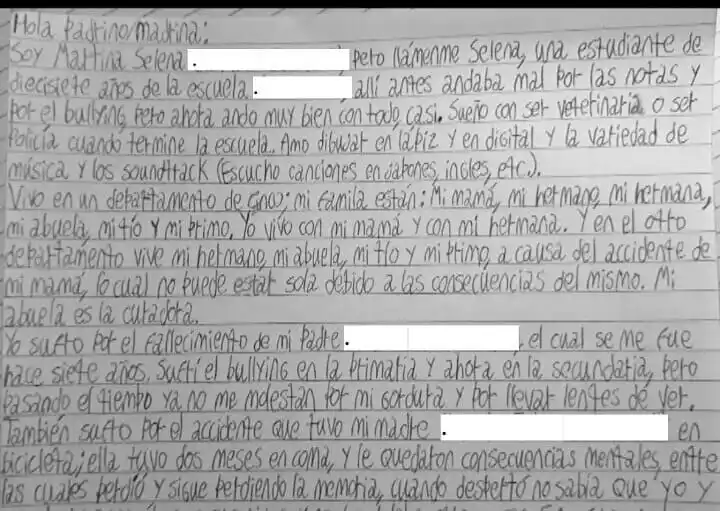 Hola Padrino/madrina:
Soy Martina Selena . pero llámenme Selena, una estudiante de
diecisiete años de la escuela . allí antes andaba mal por las notas y
por el bullying, pero ahora ando muy bien con todo, casi. Sueño con ser veterinaria o ser
Policía cuando termine la escuela. Amo dibujar en lápiz y en digital y la variedad de
música y los soundtrack (Escucho canciones en japones, ingles, etc).
Vivo en un departamento de cinco; mi familia están: Mi mamá, mi hermano, mi hermana,
mi abuela, mi tío y mi primo. Yo vivo con mi mamá y con mi hermana. Y en el otro
departamento vive mi hermano, mi abuela, mi tío y mi primo, a causa del accidente de
mi mamá, lo cual no puede estar sola debido a las consecuencias del mismo. Mi
abuela es la curadora.
Yo sufro por el fallecimiento de mi Padre . , el cual se me fue
hace siete años. Sufrí el bullying en la primaria y ahora en la secundaria, pero
pasando el tiempo ya no me molestan por mi gordura y por llevar lentes de ver.
También sufro por el accidente que tuvo mi madre . en
bicicleta; ella tuvo dos meses en coma, y le quedaron consecuencias mentales, entre
las cuales perdió y sigue perdiendo la memoria, cuando despertó no sabía que yo y